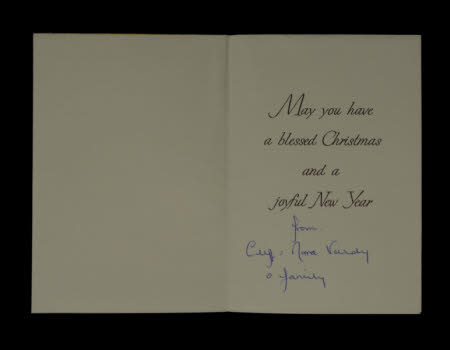 May you have
a blessed Christmas
and a
joyful New Year
from
Nora
& family